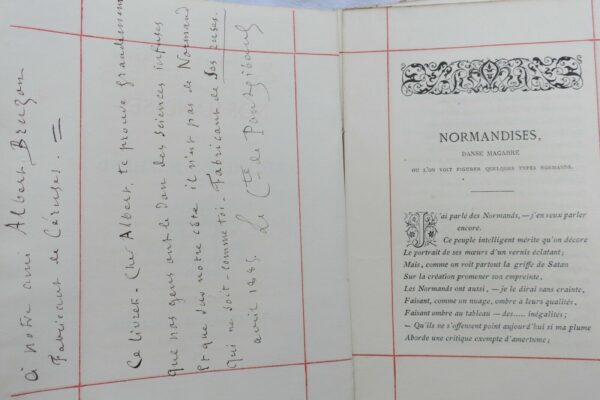 à notre ami Albert Bruzon
Fabricant de Céruses. =
Ce livret - cher Albert, te prouve grandement
que nos gens ont le don des sciences infuses
Et que sur notre côte il n'est pas de Normand
Qui ne soit - comme toi - Fabricant de Ses ruses.
Le Cte de Pontgibaud
avril 1885
NORMANDISES,
DANSE MACABRE
OU L'ON VOIT FIGURER QUELQUES TYPES NORMANDS.
J'ai parlé des Normands, — j'en veux parler
encore.
Ce peuple intelligent mérite qu'on décore
Le portrait de ses mœurs d'un vernis éclatant;
Mais, comme on voit partout la griffe de Satan
Sur la création promener son empreinte,
Les Normands ont aussi, — je le dirai sans crainte,
Faisant, comme un nuage, ombre à leurs qualités,
Faisant ombre au tableau — des..... inégalités;
— Qu'ils ne s'offensent point aujourd'hui si ma plume
Aborde une critique exempte d'amertume;